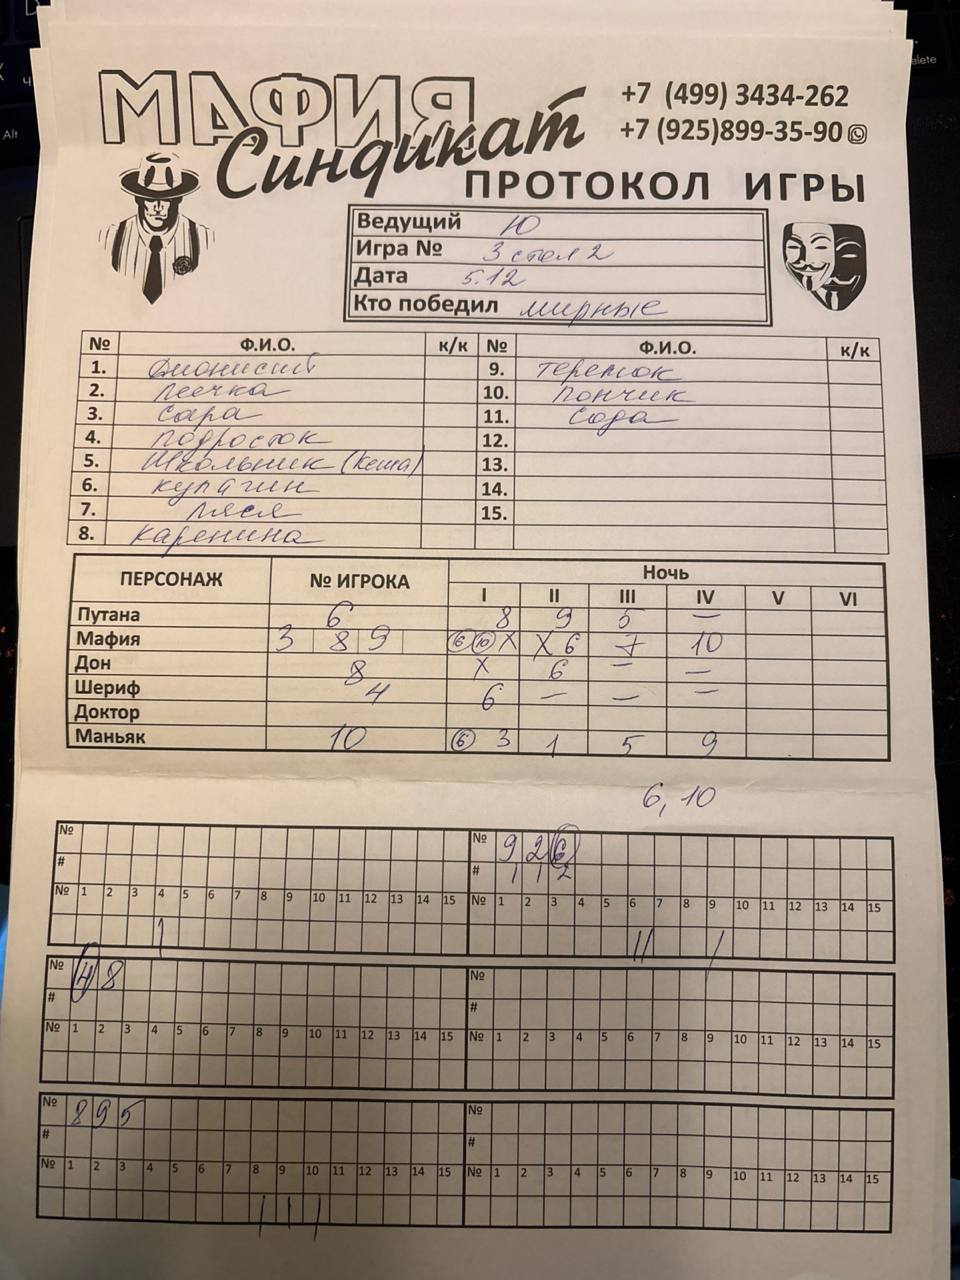 МАФИЯ
Синдикат
+7 (499) 3434-262
+7 (925)899-35-90
ПРОТОКОЛ ИГРЫ
Ведущий Ю
Игра № 3 стол 2
Дата 5.12
Кто победил мирные
№ Ф.И.О. к/к № Ф.И.О. к/к
1. Дионисий 9. Теремок
2. Печка 10. Пончик
3. Сара 11. Сода
4. Подросток 12.
5. Школьник (Кеша) 13.
6. Купагин 14.
7. Ляся 15.
8. Каренина
ПЕРСОНАЖ № ИГРОКА Ночь
I II III IV V VI
Путана 6 8 9 5 —
Мафия 3 8 9 6 10 X X 6 7 10
Дон 8 X 6 — —
Шериф 4 6 — — —
Доктор
Маньяк 10 6 3 1 5 9
6, 10
№ № 9 2 6
# # 1 1 2
№ 1 2 3 4 5 6 7 8 9 10 11 12 13 14 15 № 1 2 3 4 5 6 7 8 9 10 11 12 13 14 15
№ 4 8 №
# #
№ 1 2 3 4 5 6 7 8 9 10 11 12 13 14 15 № 1 2 3 4 5 6 7 8 9 10 11 12 13 14 15
№ 8 9 5 №
# #
№ 1 2 3 4 5 6 7 8 9 10 11 12 13 14 15 № 1 2 3 4 5 6 7 8 9 10 11 12 13 14 15